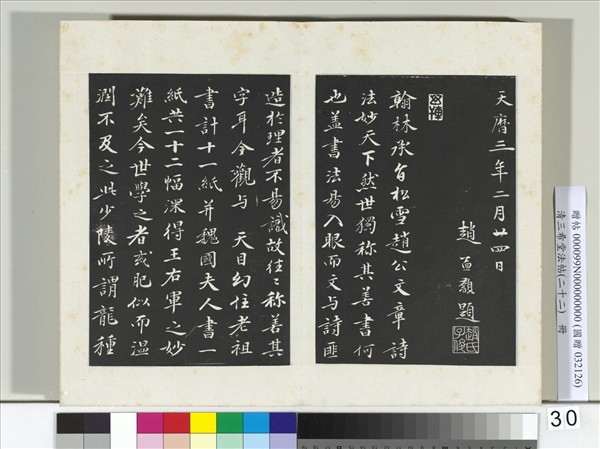 天曆三年二月廿四日
趙孟頫題
趙氏子俊
翰林承旨松雪趙公文章詩
法妙天下然世獨稱其善書何
也盖書法易入眼而文與詩匪
造於理者不易識故往〻稱善其
字耳今觀與天目幻住老祖
書計十一紙并魏國夫人書一
紙共一十二幅深得王右軍之妙
灕矣今世學之者或肥似而温
潤不及之此少陵所謂龍種
贈帖 000099N000000000 (國贈 032126)
清三希堂法帖(二十二) 冊
30